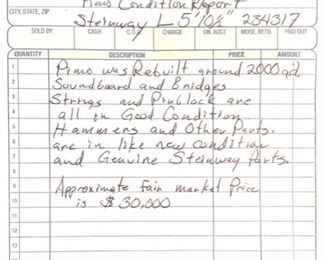 Piano Condition Report
CITY, STATE, ZIP
Steinway L 5' 10½" 234317
SOLD BY CASH C.O.D. CHARGE ON. ACCT. MDSE. RETD. PAID OUT
QUANTITY DESCRIPTION PRICE AMOUNT
1 Piano was Rebuilt around 2000
2 Soundboard and Bridges
3 Strings and Pinblock are
4 all in Good Condition
5 Hammers and Other Parts
6 are in like new condition
7 and Genuine Steinway Parts.
8
9 Approximate fair market Price
10 is $30,000
11
12